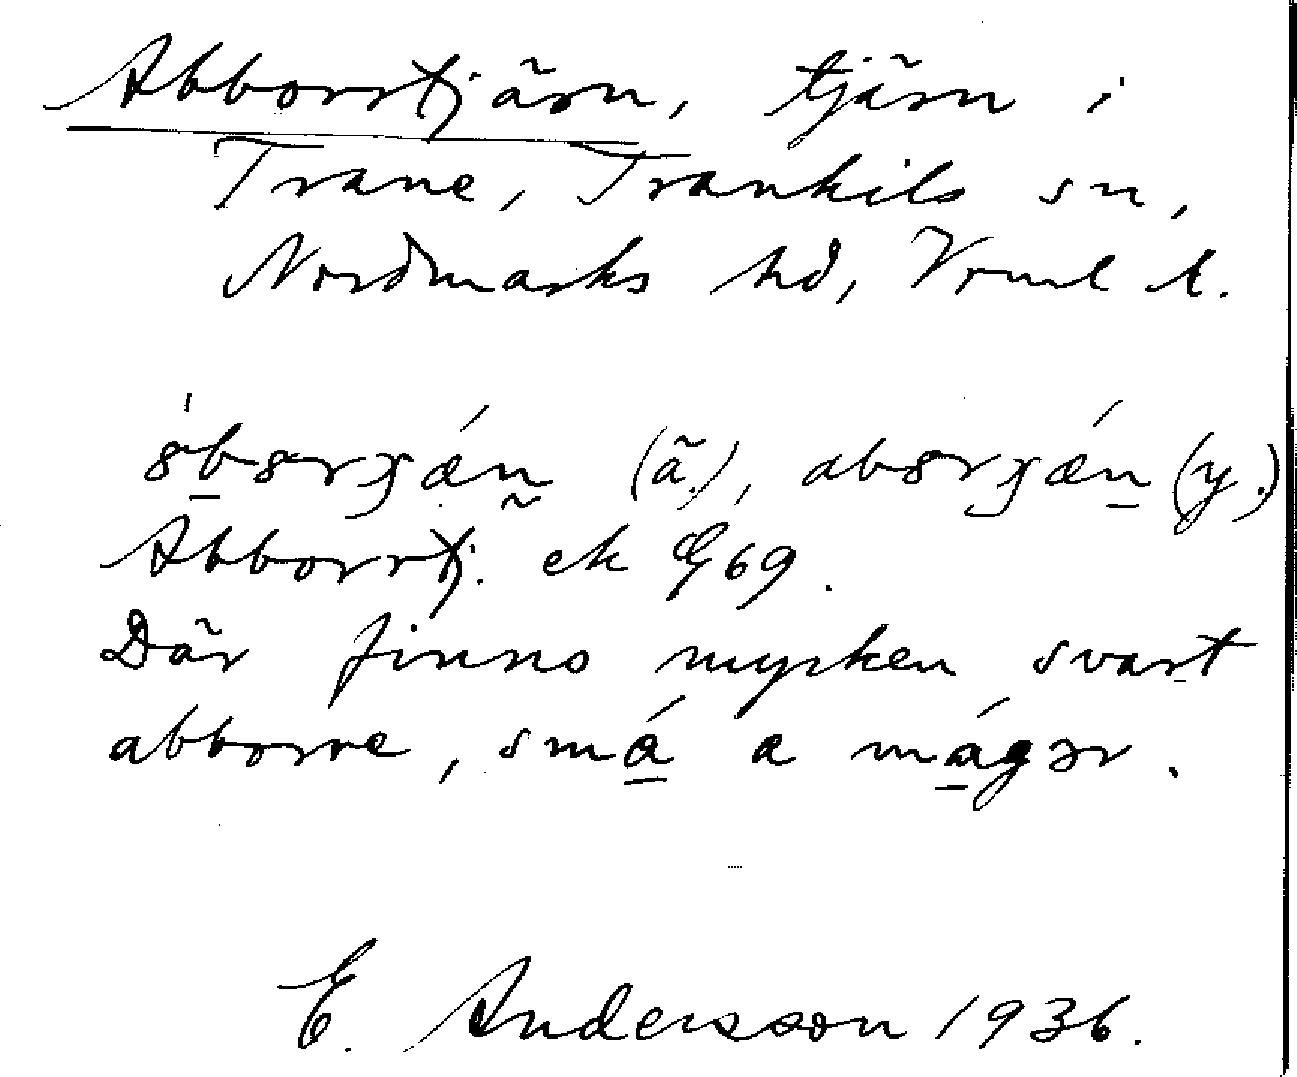 Abborrtjärn, tjärn i
Trane, Trankils sn,
Nordmarks hd, Vrml l.
(ä.), (y.)
Abborrtj. ek G69.
Där finns mycken svart
abborre, små a mágər.
E. Andersson 1936.